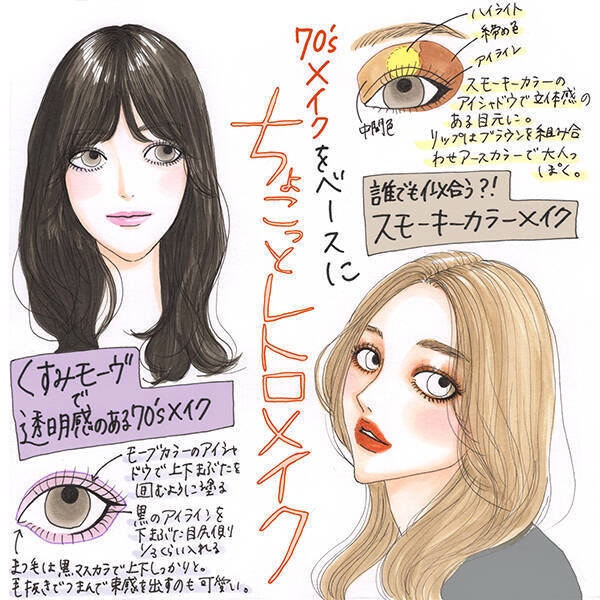 70'sメイクをベースに
ちょこっとレトロメイク
ハイライト
締め色
アイライン
中間色
スモーキーカラーの
アイシャドウで立体感の
ある目元に。
リップはブラウンを組み合
わせアースカラーで大人っ
ぽく。
誰でも似合う?!
スモーキーカラーメイク
くすみモーヴ
で
透明感のある70'sメイク
モーブカラーのアイシャ
ドウで上下まぶたを
囲むように塗る
黒のアイラインを
下まぶた目尻側
1/3くらい入れる
まつ毛は黒マスカラで上下しっかりと。
毛抜きでつまんで束感を出すのも可愛い。